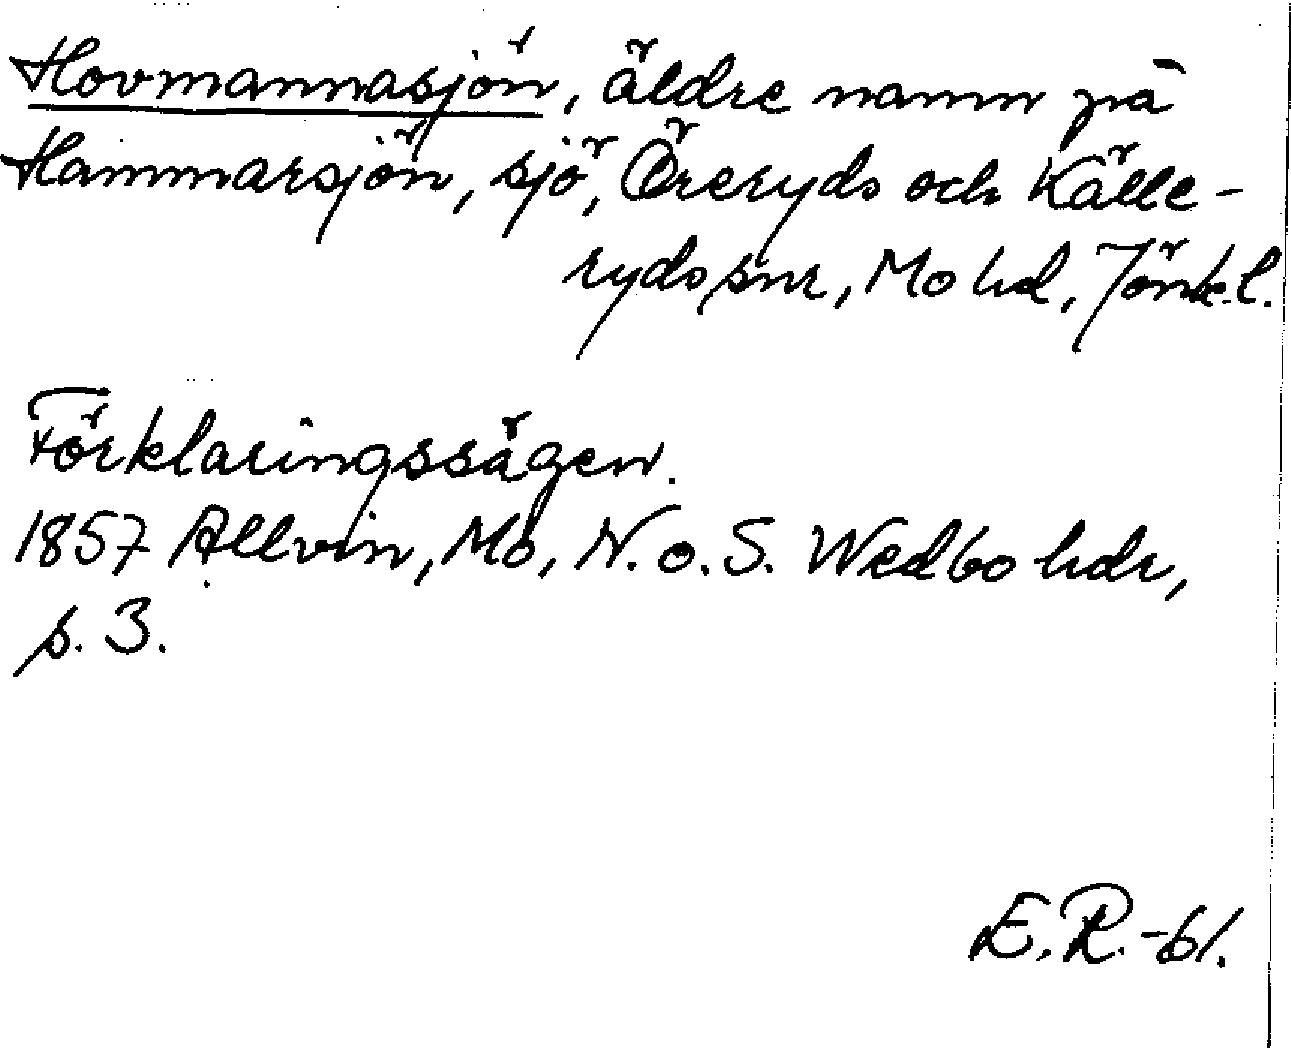 Hovmannasjön, äldre namn på
Hammarsjön, sjö, Öreryds och Källe-
ryds snr, Mo hd, Jönk.l.
Förklaringssägen.
1857 Allvin, Mo, N. o. S. Wedbo hdr,
s. 3.
E.R.-61.